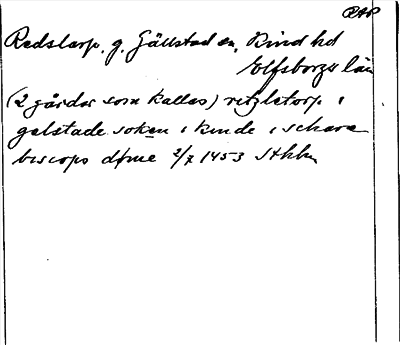 RAP
Redstorp. g. Gällstad sn, Kind hd
Elfsborgs län
(2 gårdar som kallas) retzletorp i
gelstade soken i kinde i schara
biscops døme 2/7 1453 Sthlm